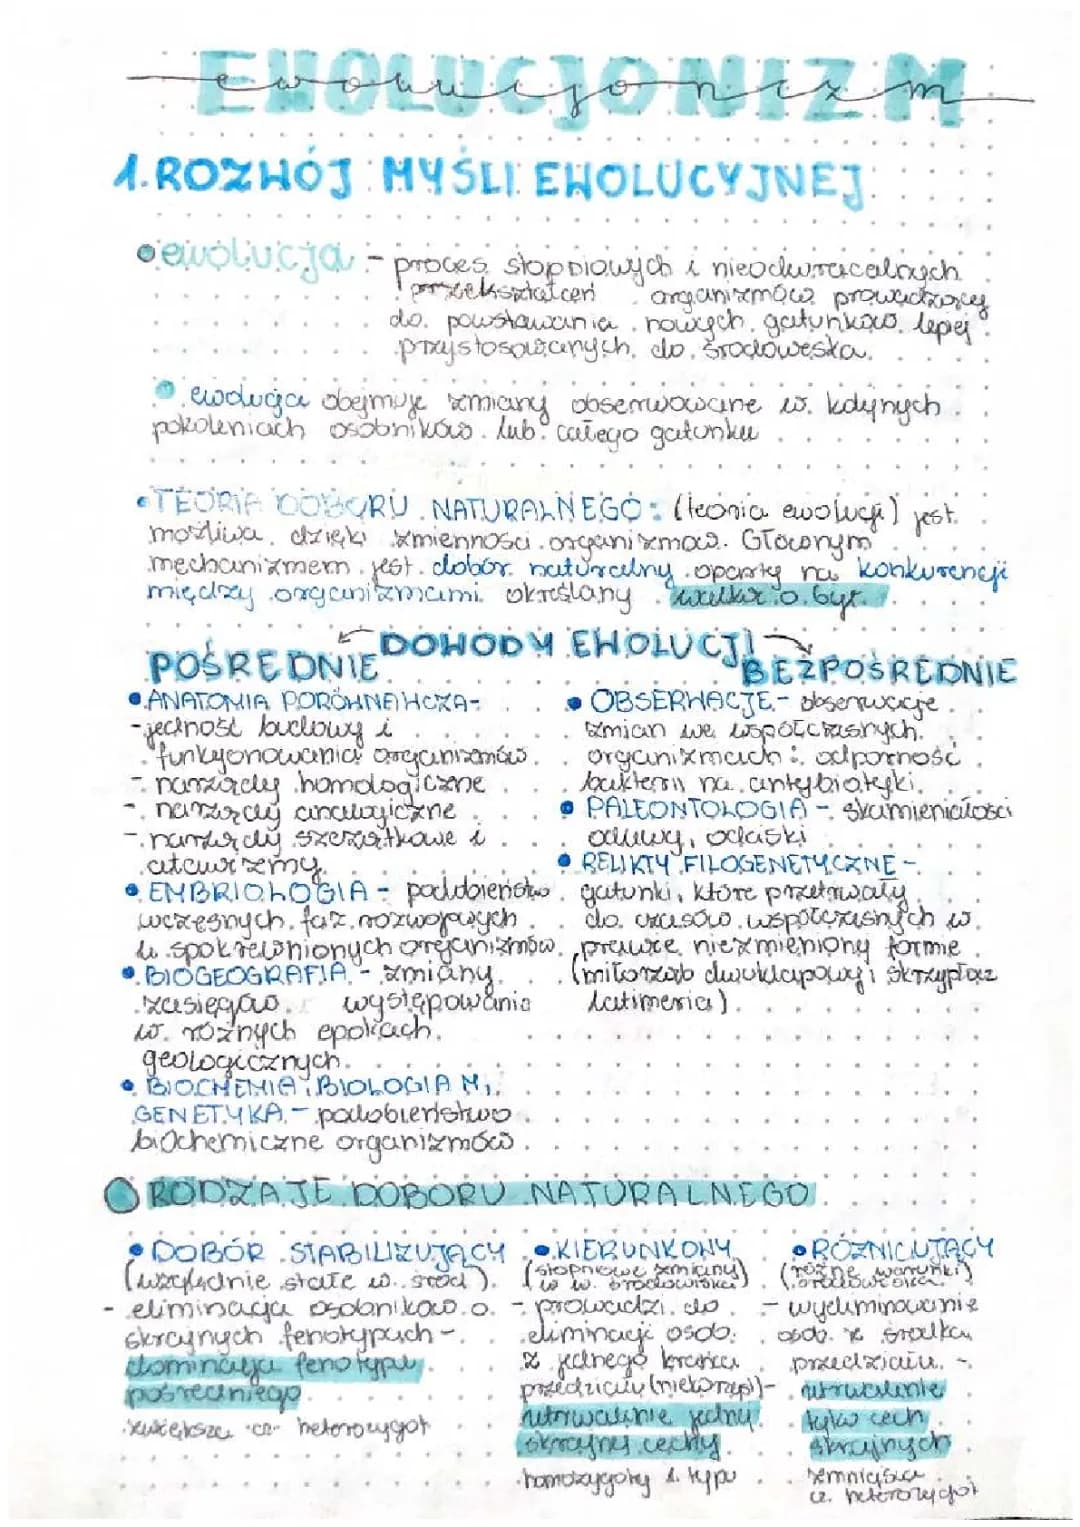 EWOLUCJONIZM
ewolucjonizm
1. ROZWÓJ MYŚLI EWOLUCYJNEJ
ewolucja - proces stopniowych i nieodwracalnych
przekształceń organizmów prowadzący
do powstawania nowych gatunków lepiej
przystosowanych do środowiska.
ewolucja obejmuje zmiany obserwowane w kolejnych
pokoleniach osobników lub całego gatunku
TEORIA DOBORU NATURALNEGO: (teoria ewolucji) jest
możliwa dzięki zmienności organizmów. Głównym
mechanizmem jest dobór naturalny oparty na konkurencji
między organizmami określany walką o byt.
DOWODY EWOLUCJI
POŚREDNIE
ANATOMIA PORÓWNAWCZA-
- jedność budowy i
funkcjonowania organizmów
- narządy homologiczne
- narządy analogiczne
- narządy szczątkowe i
atawizmy
EMBRIOLOGIA - podobieństwo
wczesnych faz rozwojowych
u spokrewnionych organizmów
BIOGEOGRAFIA - zmiany
zasięgów występowania
w różnych epokach
geologicznych
BIOCHEMIA i BIOLOGIA M,
GENETYKA - podobieństwo
biochemiczne organizmów
BEZPOŚREDNIE
OBSERWACJE - obserwacje
zmian we współczesnych
organizmach: odporność
bakterii na antybiotyki
PALEONTOLOGIA - skamieniałości
odlewy, odciski
RELIKTY FILOGENETYCZNE -
gatunki, które przetrwały
do czasów współczesnych w
prawie niezmienionej formie
(miłorząb dwuklapowy i skrzypłocz
latimeria)
RODZAJE DOBORU NATURALNEGO
DOBÓR STABILIZUJĄCY
(względnie stałe w. środ)
- eliminacja osobników o
skrajnych fenotypach -
dominacja fenotypu
pośredniego
zwiększa cz. heterozygot
KIERUNKOWY
(stopniowe zmiany
w w. środowiska)
- prowadzi do
eliminacji osob.
z jednego krańca
przedziału -
utrwalenie jednej
skrajnej cechy
homozygoty 1. typu
RÓŻNICUJĄCY
(różne warunki
środowiska)
- wyeliminowanie
osob. ze środka
przedziału -
utrwalenie
tylko cech
skrajnych
zmniejsza
cz. heterozygot